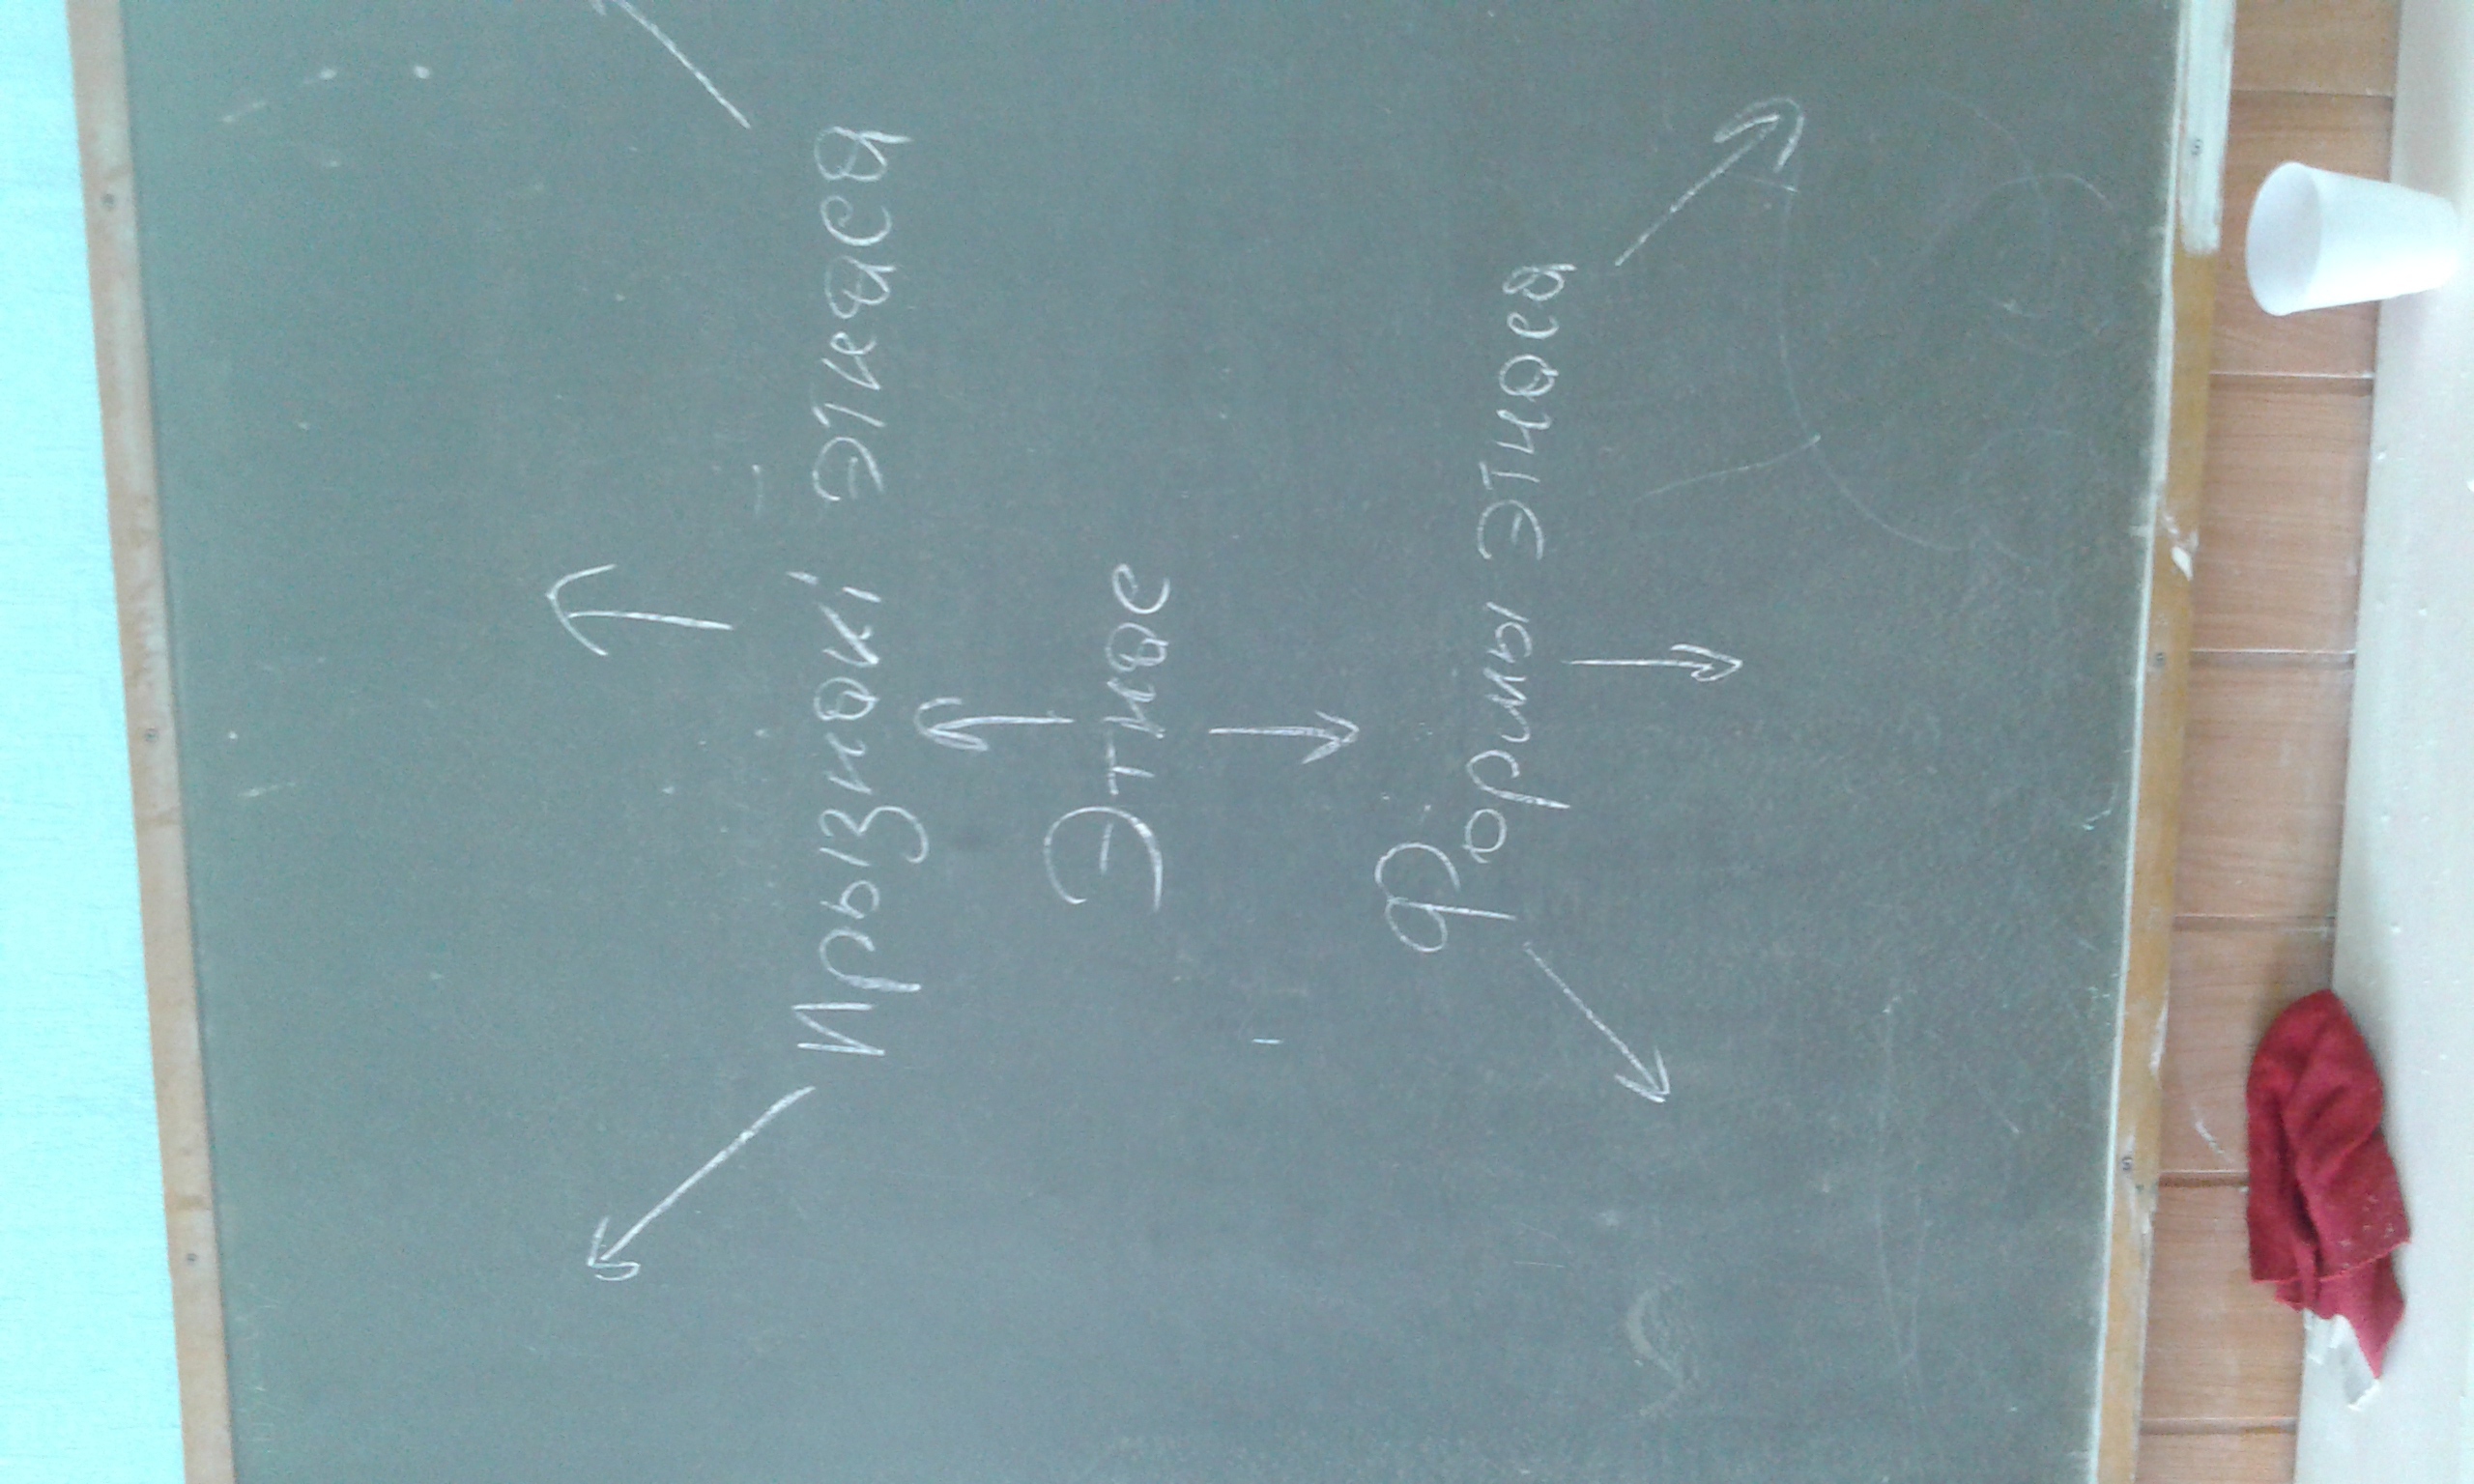 Прызнакі этнаса
Этнас
Формы этнаса